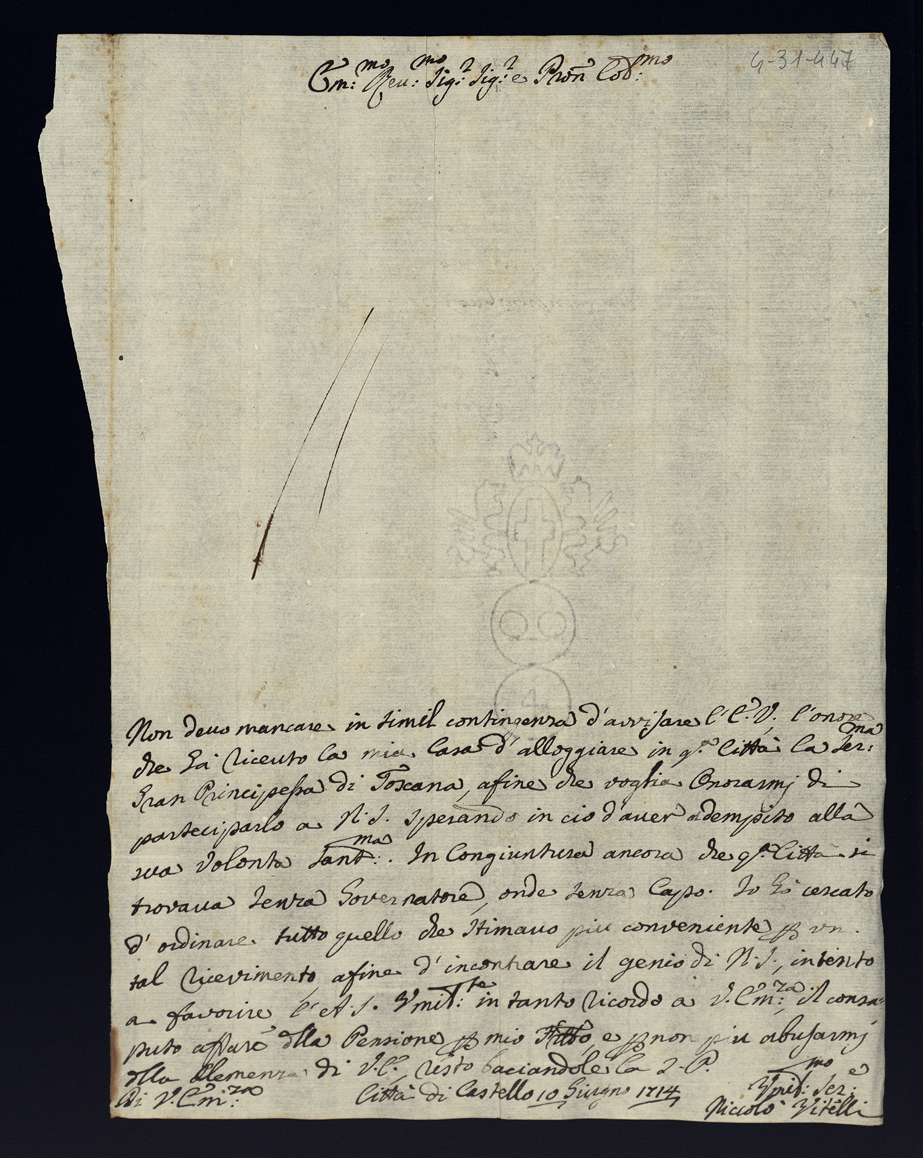 4-31-447
Em:mo Reu:mo Sig:r Sig:r e Pron Col:mo
Non deuo mancare in simil contingenza d'avvisare l'E. V. l'onore
che hà riceuto la mia Casa d'alloggiare in q.ta Città la Ser:ma
Gran Principessa di Toscana, afine che voglia Onorarmj di
parteciparlo a N. S. sperando in cio d'aver adempito alla
sua Volonta Sant:ma. In Congiuntura ancora che q.ta Città si
trovaua senza Governatore, onde senza Capo. Io hò cercato
d'ordinare tutto quello che stimauo piu conveniente p un
tal ricevimento, afine d'incontrare il genio di N. S., intento
a favorire l'A. S. Vmil:te in tanto ricordo a V. Em:za il consa-
puto affare dlla Pensione p mio e p non piu abusarmj
dlla Clemenza di V. E., resto baciandole la S. P.
Di V. Em:za Città di Castello 10 Giugno 1714
Vmil:mo Ser:e
Niccolò Vitelli
4